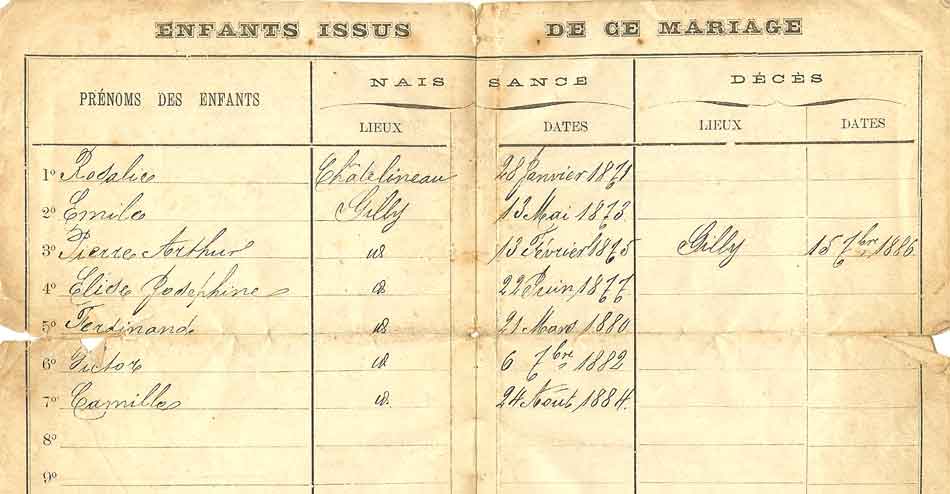 ENFANTS ISSUS DE CE MARIAGE
PRÉNOMS DES ENFANTS NAISSANCE DÉCÈS
LIEUX DATES LIEUX DATES
1º Rosalie Châtelineau 28 Janvier 1871
2º Emile Gilly 13 Mai 1873.
3º Pierre Arthur id 13 Février 1875 Gilly 15 7bre 1886.
4º Elise Joséphine id 22 Juin 1877
5º Ferdinand id 21 Mars 1880
6º Victor id 6 7bre 1882
7º Camille id. 24 Août 1884.
8º
9º